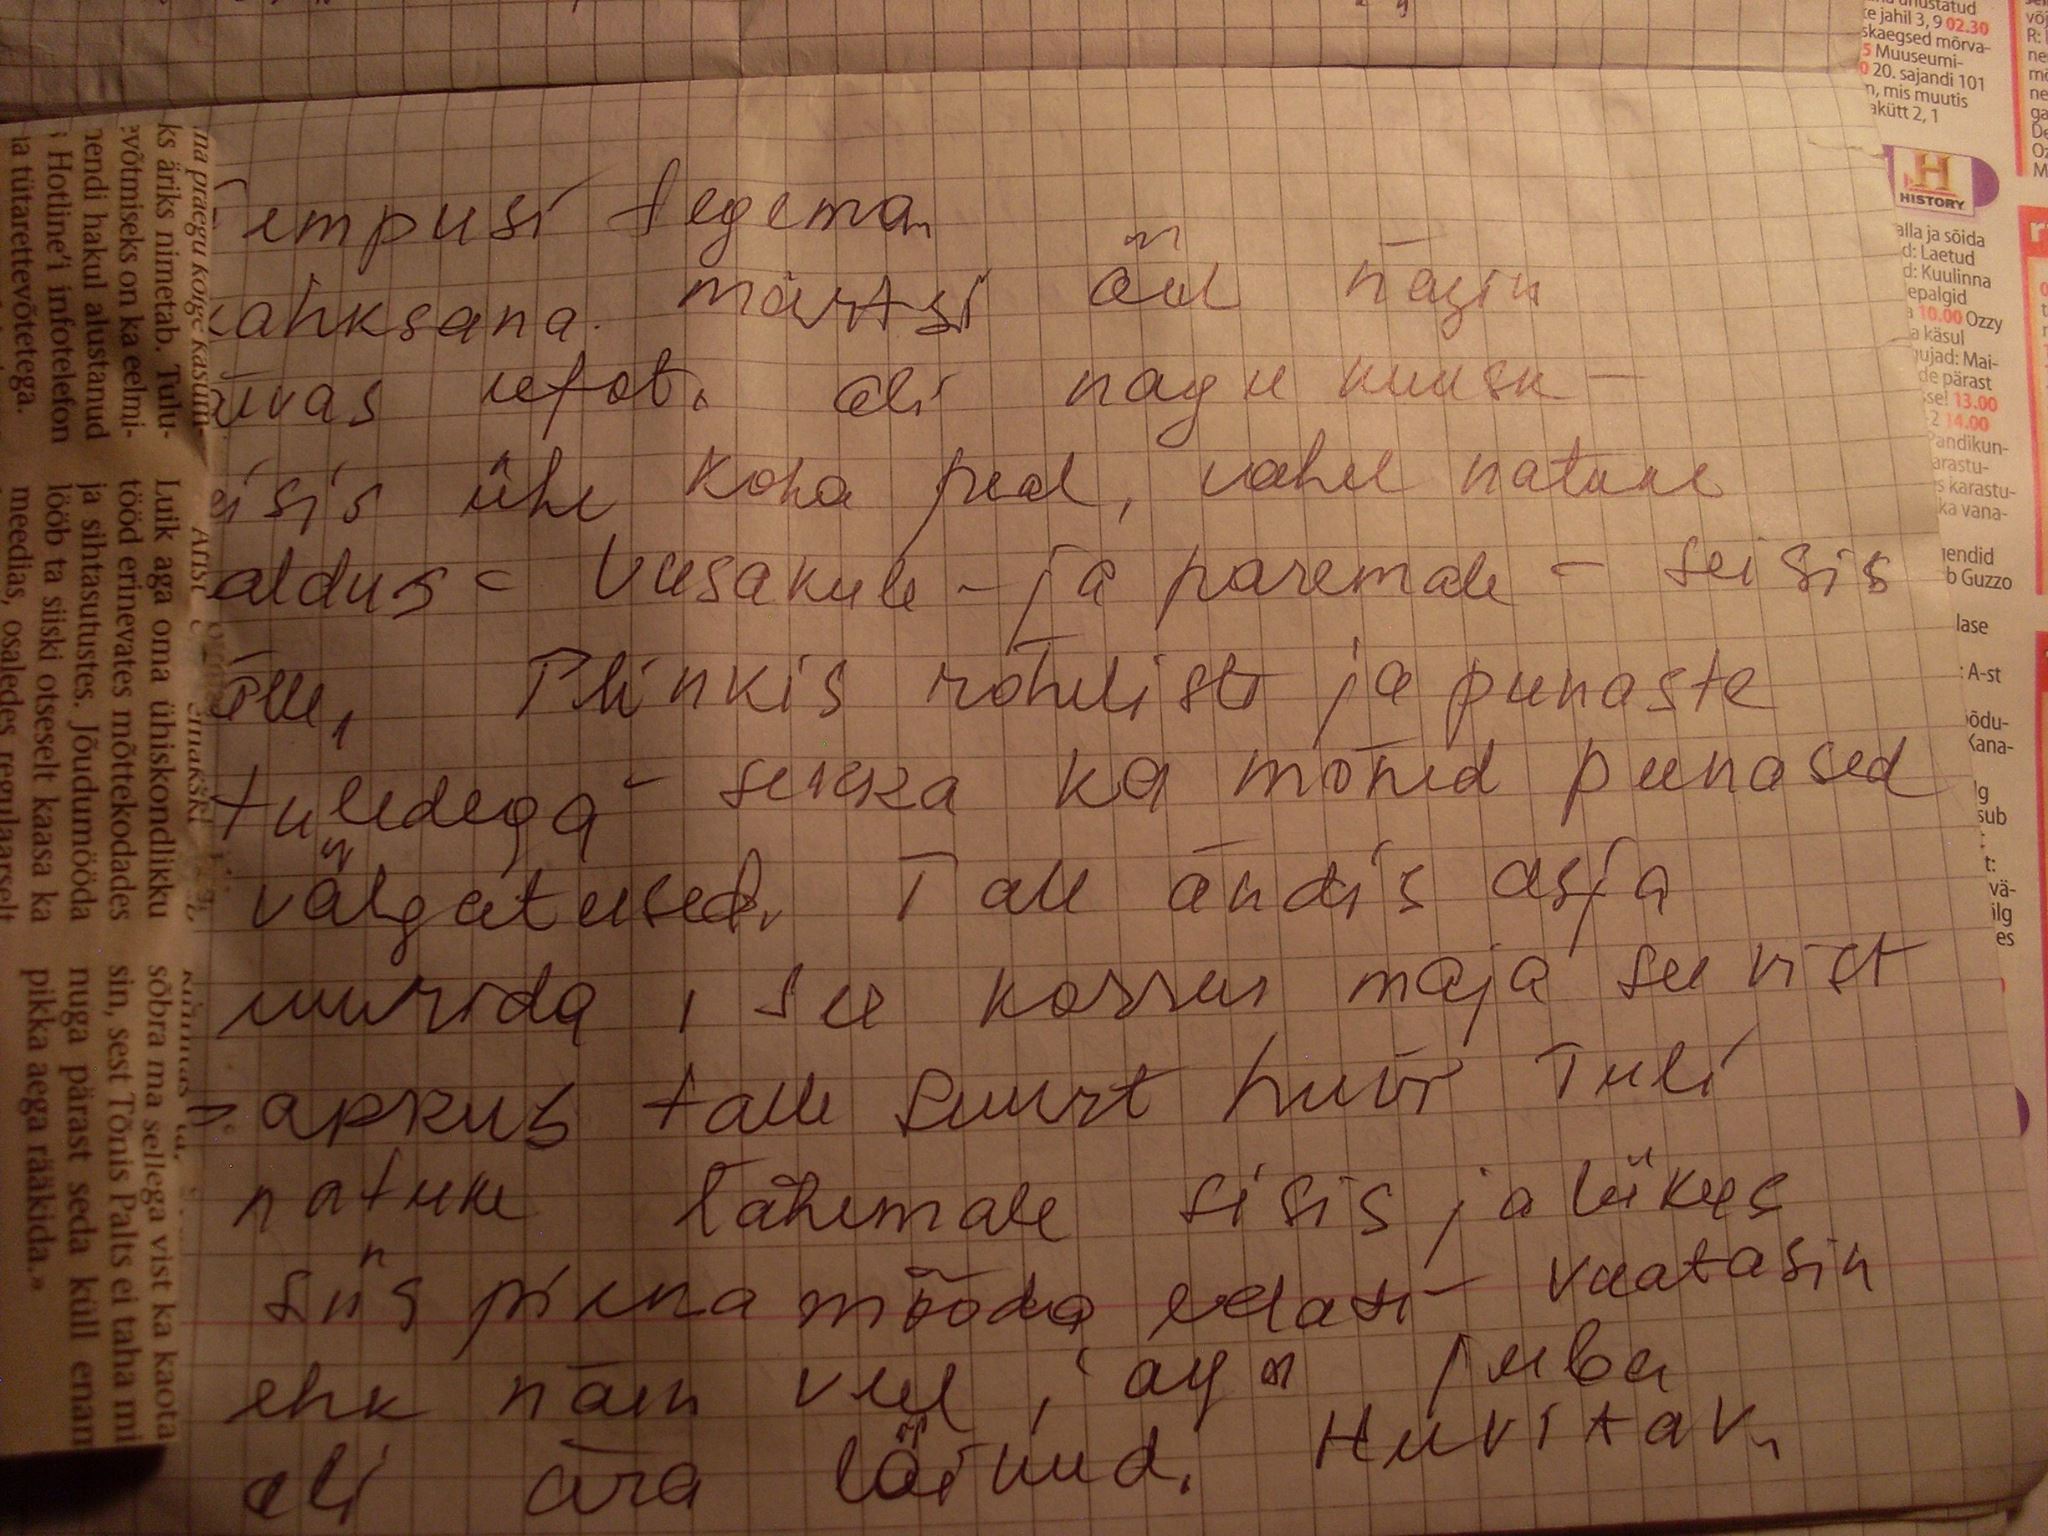 tempusi tegema.
kahksana. märtsi ööl nägin
ufot. oli nagu kuusk -
ühe koha peal, vahel natuke
- vasakule - ja paremale - seisis
jälle, Plinkis roheliste ja punaste
tuledega - sekka ka mõned punased
välgatused. Talle andis asja
uurida, see korrus maja see vist
pakkus talle suurt huvi Tuli
natuke lähemale sisis ja liikus
siis pinna mööda edasi - vaatasin
ehk näen veel, aga juba
oli ära läinud. Huvitav.
na praegu kõige kasum-
ks äriks nimetab. Tulu-
evõtmiseks on ka eelmi-
nendi hakul alustanud
Hotline'i infotelefon
na tütarettevõtetega.
Luik aga oma ühiskondlikku
tööd erinevates mõttekodades
ja sihtasutustes. Jõudumööda
lööb ta siiski otseselt kaasa ka
meedias, osaledes regulaarselt
sõbra ma sellega vist ka kaota
sin, sest Tõnis Palts ei taha mi
nuga pärast seda küll enam
pikka aega rääkida.»
te jahil 3, 9 02.30
skaegsed mõrva-
5 Muuseumi-
0 20. sajandi 101
n, mis muutis
akütt 2, 1
H
HISTORY
alla ja sõida
d: Laetud
d: Kuulinna
epalgid
a 10.00 Ozzy
a käsul
gujad: Mai-
de pärast
sse! 13.00
2 14.00
Pandikun-
arastu-
s karastu-
ka vana-
endid
b Guzzo
lase
A-st
õdu-
Kana-
lg
sub
t:
vä-
ilg
es